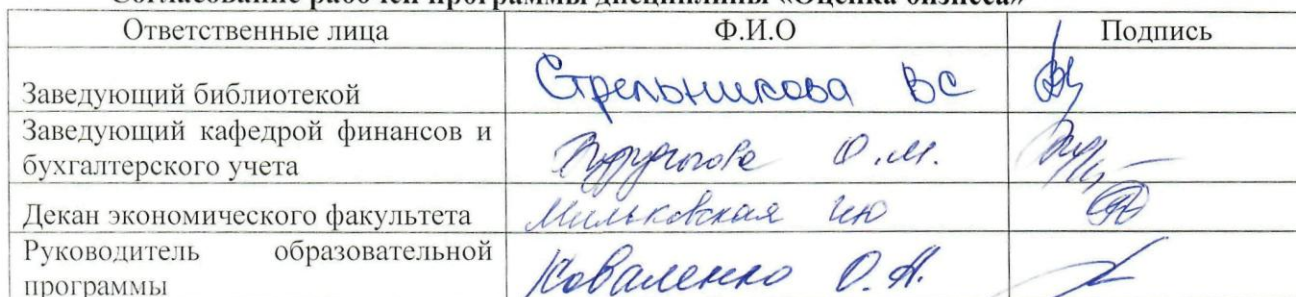 Согласование рабочей программы дисциплины «Оценка бизнеса»
Ответственные лица Ф.И.О Подпись
Заведующий библиотекой Стрельникова ВС
Заведующий кафедрой финансов и
бухгалтерского учета О.М.
Декан экономического факультета Мильковская ИЮ
Руководитель образовательной
программы Коваленко О.А.